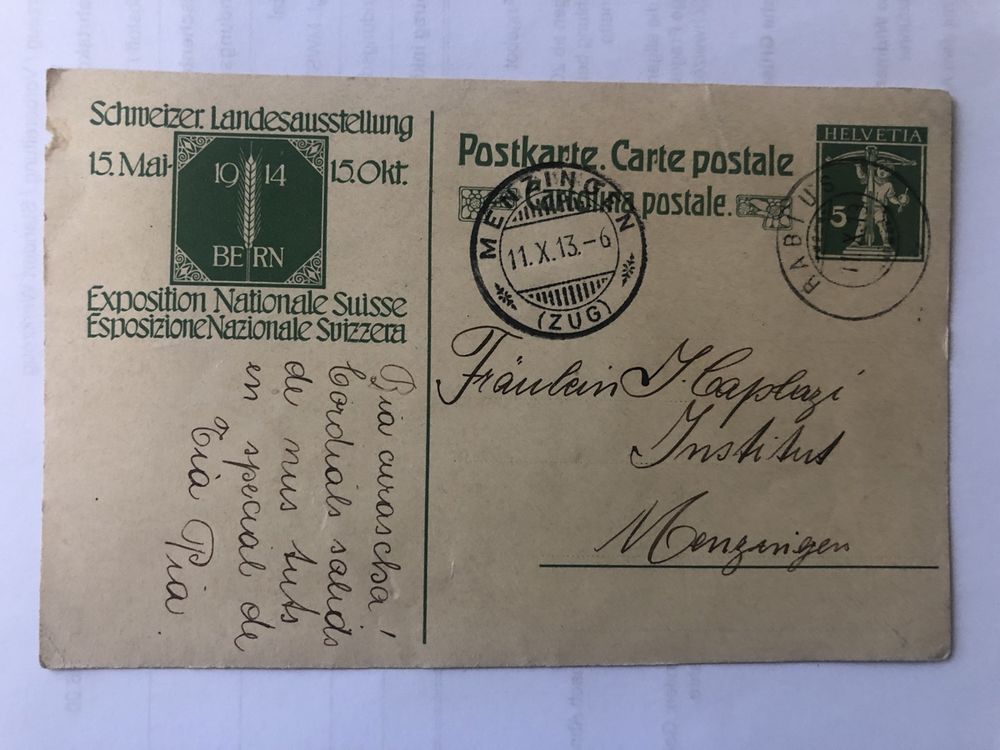 Schweizer. Landesausstellung
15. Mai - 15. Okt.
19 14
BERN
Exposition Nationale Suisse
Esposizione Nazionale Svizzera
Postkarte. Carte postale
Cartolina postale.
HELVETIA
5
MENZINGEN
11.X.13.-6
(ZUG)
RABIUS
Fräulein J. Caplazi
Institut
Menzingen
Pia curascha!
Cordials salids
de nus tuts
en special de
Tia Pia